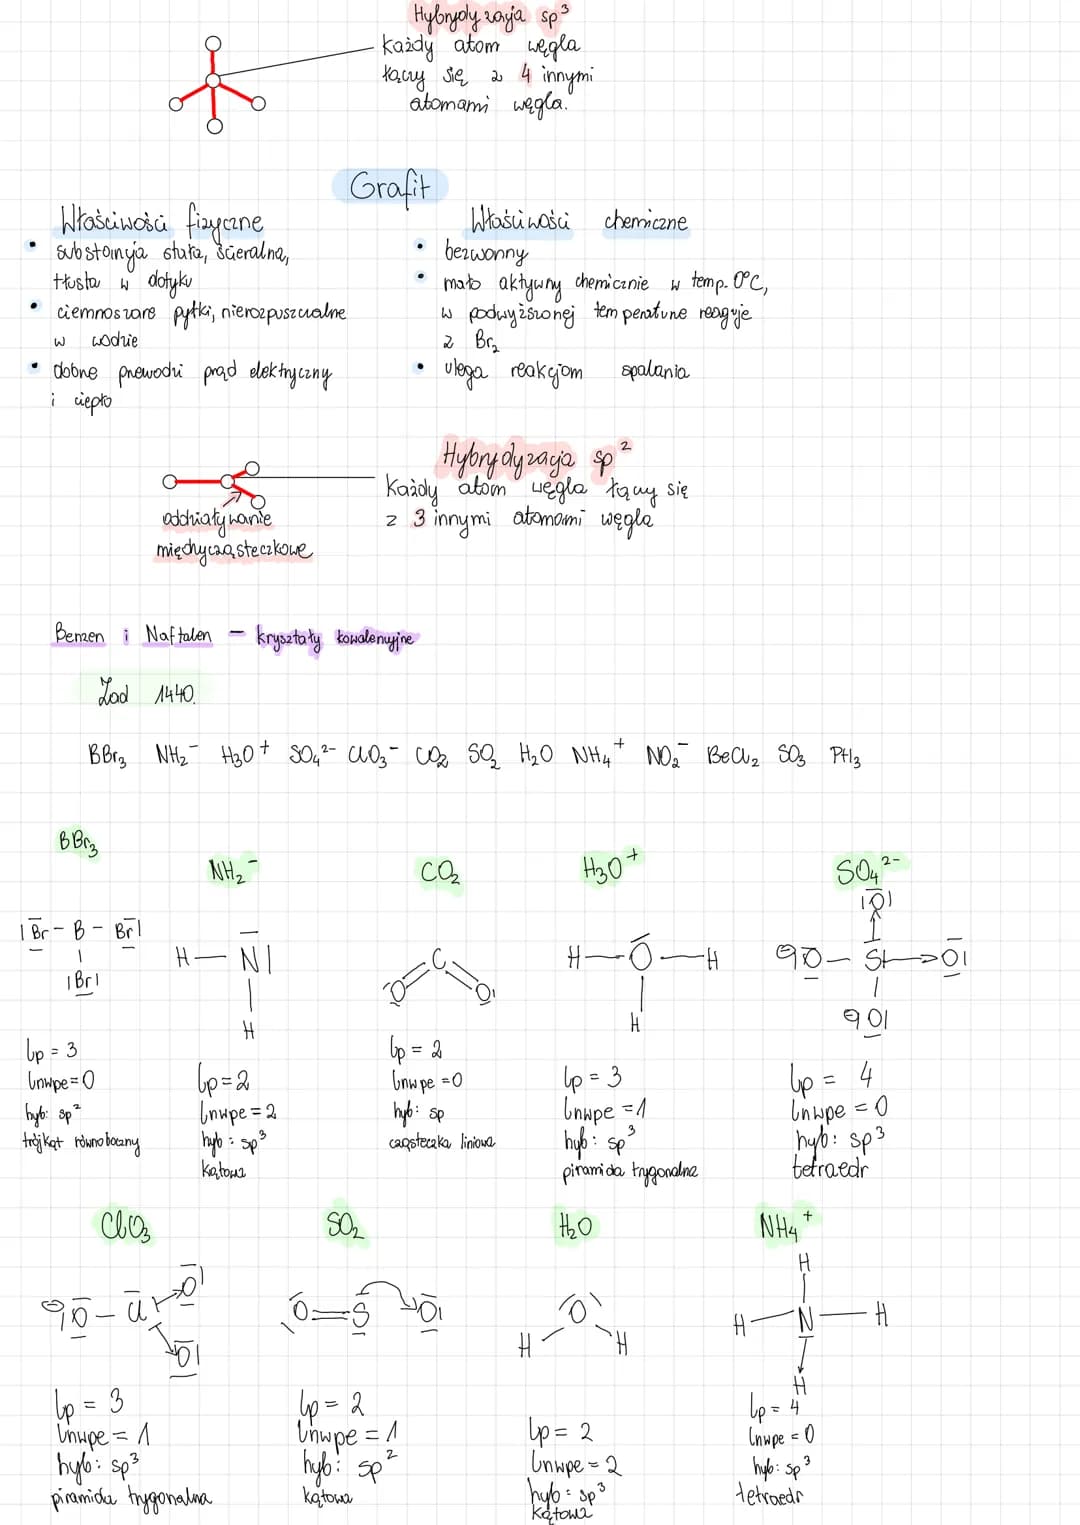 Hybrydyzacja sp³
każdy atom węgla
łączy się z 4 innymi
atomami węgla.
Grafit
Właściwości fizyczne
• substancja stała, ścieralna,
tłusta w dotyku
• ciemnoszare płytki, nierozpuszczalne
w wodzie
• dobrze przewodzi prąd elektryczny
i ciepło
Właściwości chemiczne
• bezwonny
• mało aktywny chemicznie w temp. 0°C,
w podwyższonej temperaturze reaguje
z Br₂
• ulega reakcjom spalania
Hybrydyzacja sp²
Każdy atom węgla łączy się
z 3 innymi atomami węgla
oddziaływanie
międzycząsteczkowe
Benzen i Naftalen – kryształy kowalencyjne
Zad 1440.
BBr₃ NH₂⁻ H₃O⁺ SO₄²⁻ ClO₃⁻ CO₂ SO₂ H₂O NH₄⁺ NO₂⁻ BeCl₂ SO₃ PH₃
BBr₃
Br – B – Br
Br
lp = 3
lnwpe = 0
hyb: sp²
trójkąt równoboczny
NH₂⁻
H – N
H
lp = 2
lnwpe = 2
hyb: sp³
kątowa
CO₂
C
O O
lp = 2
lnwpe = 0
hyb: sp
cząsteczka liniowa
H₃O⁺
H – O – H
H
lp = 3
lnwpe = 1
hyb: sp³
piramida trygonalna
SO₄²⁻
O
⊖ O – S → O
⊖ O
lp = 4
lnwpe = 0
hyb: sp³
tetraedr
ClO₃
O
⊖ O – Cl
O
lp = 3
lnwpe = 1
hyb: sp³
piramida trygonalna
SO₂
O = S O
lp = 2
lnwpe = 1
hyb: sp²
kątowa
H₂O
O
H H
lp = 2
lnwpe = 2
hyb: sp³
kątowa
NH₄⁺
H
H – N – H
H
lp = 4
lnwpe = 0
hyb: sp³
tetraedr